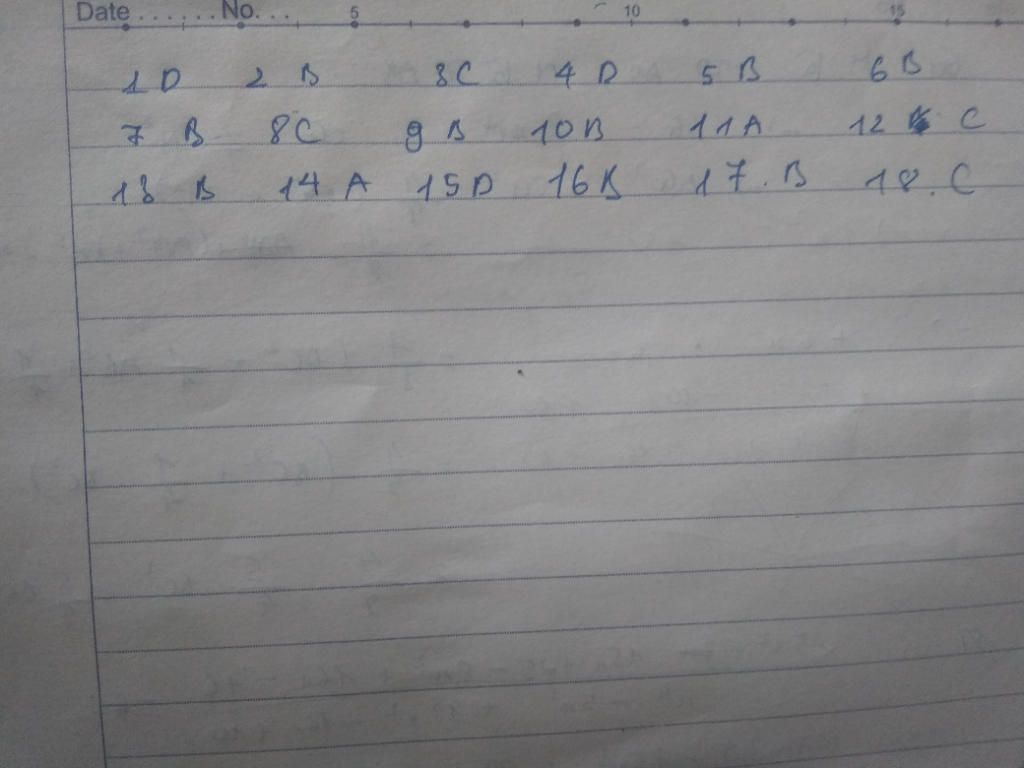 Date.......No....
5 10 15
1 D 2 B 3 C 4 D 5 B 6 B
7 B 8 C 9 B 10 B 11 A 12 C
13 B 14 A 15 D 16 B 17. B 18. C